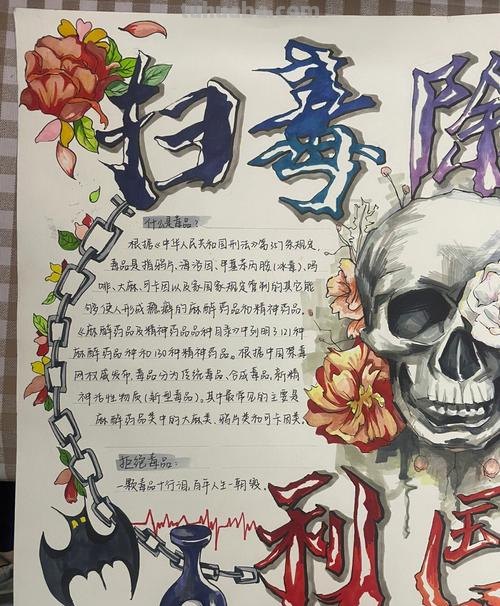 tuhuaba.com
扫毒除
什么是毒品?
根据《中华人民共和国刑法》第357条规定,
毒品是指鸦片、海洛因、甲基苯丙胺(冰毒)、吗
啡、大麻、可卡因以及国家规定管制的其它能
够使人形成瘾癖的麻醉药品和精神药品。
《麻醉药品及精神药品品种目录》中列明了121种
麻醉药品种和130种精神药品。根据中国禁毒
网权威发布,毒品分为传统毒品、合成毒品、新精
神活性物质(新型毒品)。其中最常见的主要是
麻醉药品类中的大麻类、鸦片类和可卡因类。
拒绝毒品:
一颗毒品十行泪,百年人生一朝毁。
利国